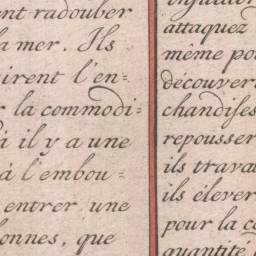 nt radouber
la mer. Ils
irent l'en=
r la commodi=
à il y a une
à l'embou=
entrer une
onnes, que
attaquez
même pou
découvert
chandises
repousser
ils trava
ils élever
pour la co
quantité